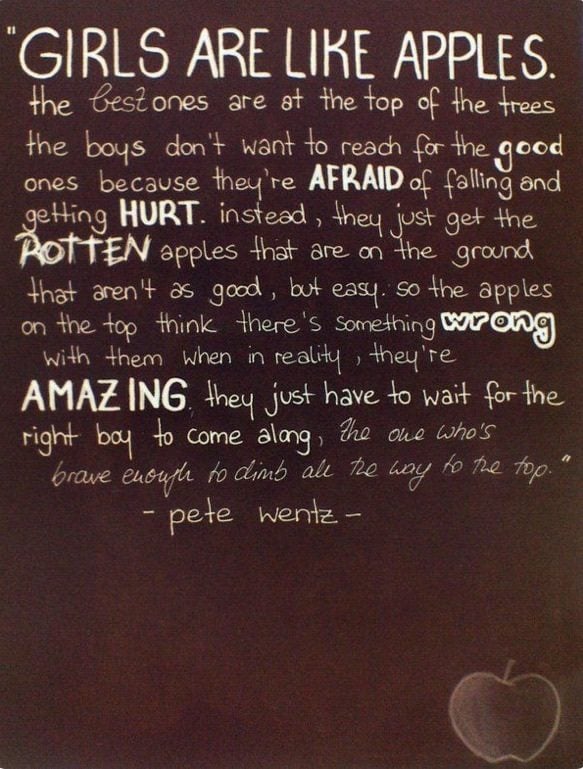 "GIRLS ARE LIKE APPLES.
the best ones are at the top of the trees
the boys don't want to reach for the good
ones because they're AFRAID of falling and
getting HURT. instead, they just get the
ROTTEN apples that are on the ground
that aren't as good, but easy. so the apples
on the top think there's something wrong
with them when in reality, they're
AMAZING, they just have to wait for the
right boy to come along, the one who's
brave enough to climb all the way to the top."
- pete wentz -